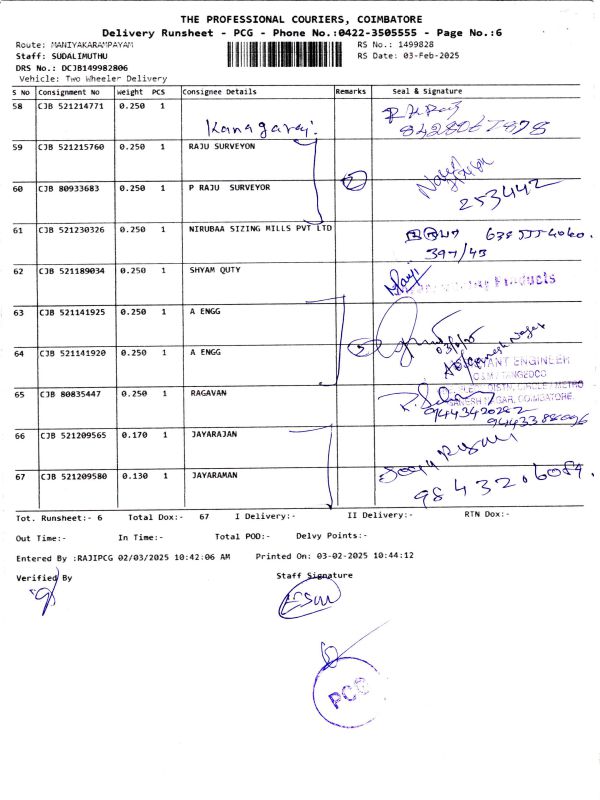 THE PROFESSIONAL COURIERS, COIMBATORE
Delivery Runsheet - PCG - Phone No.:0422-3505555 - Page No.:6
Route: MANIYAKARAMPAYAM RS No.: 1499828
Staff: SUDALIMUTHU RS Date: 03-Feb-2025
DRS No.: DCJB149982806
Vehicle: Two Wheeler Delivery
S No Consignment No Weight PCS Consignee Details Remarks Seal & Signature
58 CJB 521214771 0.250 1
Kanagaraj.
59 CJB 521215760 0.250 1 RAJU SURVEYON
60 CJB 80933683 0.250 1 P RAJU SURVEYOR 2
253442
61 CJB 521230326 0.250 1 NIRUBAA SIZING MILLS PVT LTD
397/43
62 CJB 521189034 0.250 1 SHYAM QUTY
Products
63 CJB 521141925 0.250 1 A ENGG
64 CJB 521141920 0.250 1 A ENGG
ENGINEER
O&M / TANGEDCO
METRO
65 CJB 80835447 0.250 1 RAGAVAN
GANESH NAGAR, COIMBATORE.
66 CJB 521209565 0.170 1 JAYARAJAN
67 CJB 521209580 0.130 1 JAYARAMAN
Tot. Runsheet:- 6 Total Dox:- 67 I Delivery:- II Delivery:- RTN Dox:-
Out Time:- In Time:- Total POD:- Delvy Points:-
Entered By :RAJIPCG 02/03/2025 10:42:06 AM Printed On: 03-02-2025 10:44:12
Verified By Staff Signature
PCG